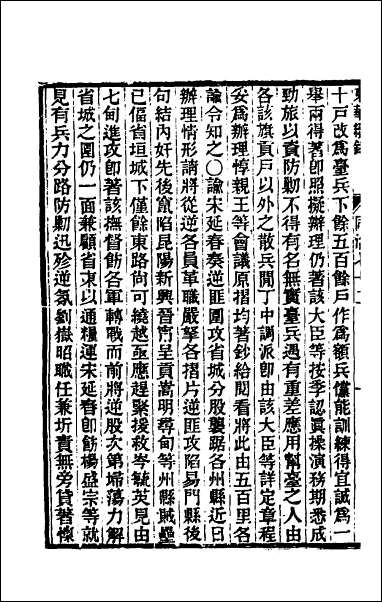 十戶改爲臺兵下餘五百餘戶作爲額兵儻能訓練得宜誠爲一
舉兩得著卽照擬辦理仍著該大臣等按季認眞操演務期悉成
勁旅以資防勦不得有名無實臺兵遇有重差應用幫臺之人由
各該旗貢戶以外之散兵閒丁中調派卽由該大臣等詳定章程
妥爲辦理惇親王等會議原摺均著鈔給閱看將此由五百里各
諭令知之○諭宋延春奏逆匪圍攻省城分股襲踞各州縣近日
辦理情形請將從逆各員革職嚴拏各摺片逆匪攻陷易門縣後
句結內奸先後竄陷昆陽新興晉甯呈貢嵩明尋甸等州縣賊壘
已偪省垣城下僅餘東路尙可繞越亟應趕緊援救岑毓英見由
七甸進攻卽著該撫督飭各軍轉戰而前將逆股次第埽蕩力解
省城之圍仍一面兼顧省東以通糧運宋延春卽飭楊盛宗等就
見有兵力分路防勦迅殄逆氛劉嶽昭職任兼圻責無旁貸著懍